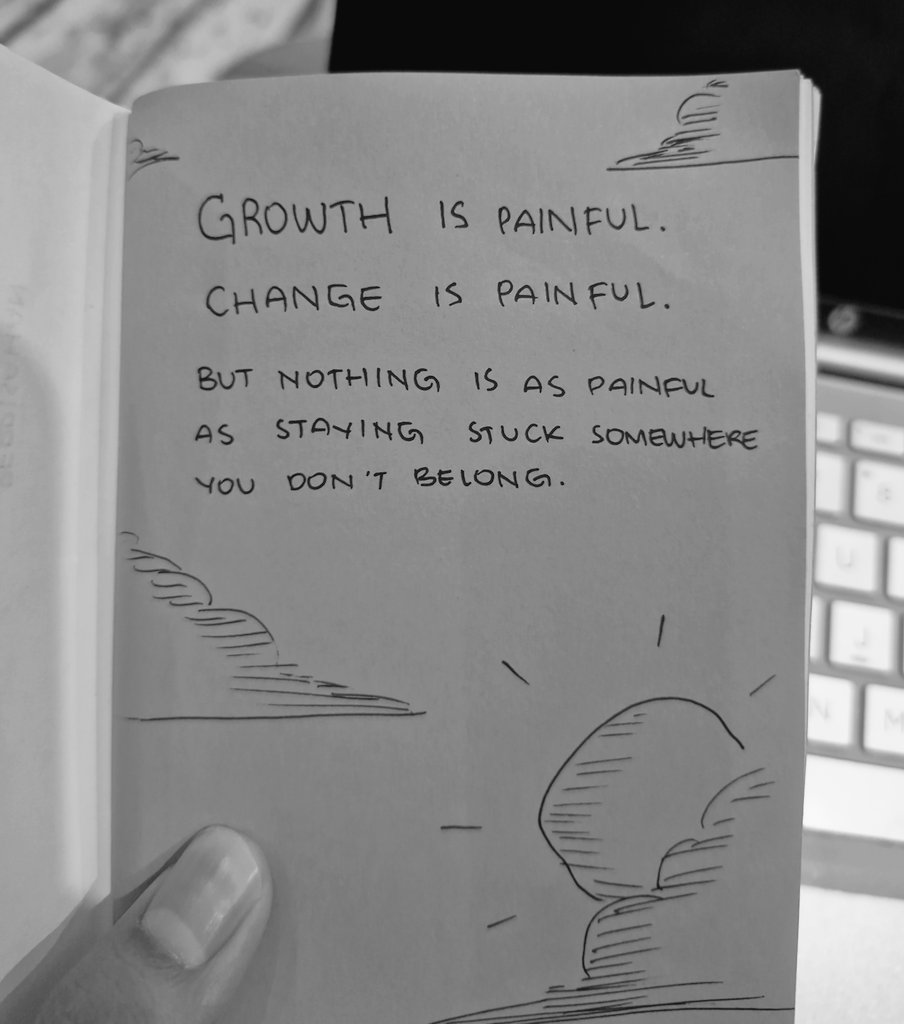 GROWTH IS PAINFUL.
CHANGE IS PAINFUL.
BUT NOTHING IS AS PAINFUL
AS STAYING STUCK SOMEWHERE
YOU DON'T BELONG.
hp
U
J
N M